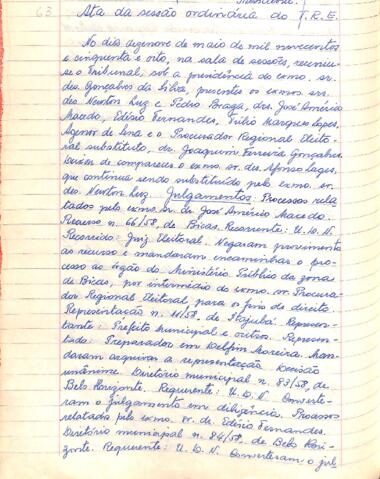 63
Ata da sessão ordinária do T.R.E.
No dia dezenove de maio de mil novecentos
e cinquenta e oito, na sala de sessões, reuniu-
se o Tribunal, sob a presidência do exmo. sr.
des. Gonçalves da Silva, presentes os exmos. srs.
des. Newton Luz e Pedro Braga, drs. José Américo
Macedo, Edísio Fernandes, Túlio Marques Lopes,
Agenor de Sena e o Procurador Regional Eleito-
ral substituto, dr. Joaquim Ferreira Gonçalves.
Deixou de comparecer o exmo. sr. des. Afonso Lages,
que continua sendo substituído pelo exmo. sr.
des. Newton Luz. Julgamentos: Processos rela-
tados pelo exmo. Sr. dr. José Américo Macedo.
Recurso n. 66/58, de Bicas. Recorrente: U.D.N.
Recorrido: Juiz Eleitoral. Negaram provimento
ao recurso e mandaram encaminhar o pro-
cesso ao órgão do Ministério Público da zona
de Bicas, por intermédio do exmo. sr. Procura-
dor Regional Eleitoral, para os fins de direito.
Representação n. 11/58, de Itajubá. Represen-
tante: Prefeito Municipal e outros. Represen-
tado: Preparador em Delfim Moreira. Man-
daram arquivar a representação. Decisão
unânime. Diretório municipal n. 83/58, de
Belo Horizonte. Requerente: U.D.N. Converte-
ram o julgamento em diligência. Processos
relatados pelo exmo. sr. dr. Edísio Fernandes.
Diretório municipal n. 84/58, de Belo Hori-
zonte. Requerente: U.D.N. Converteram o jul